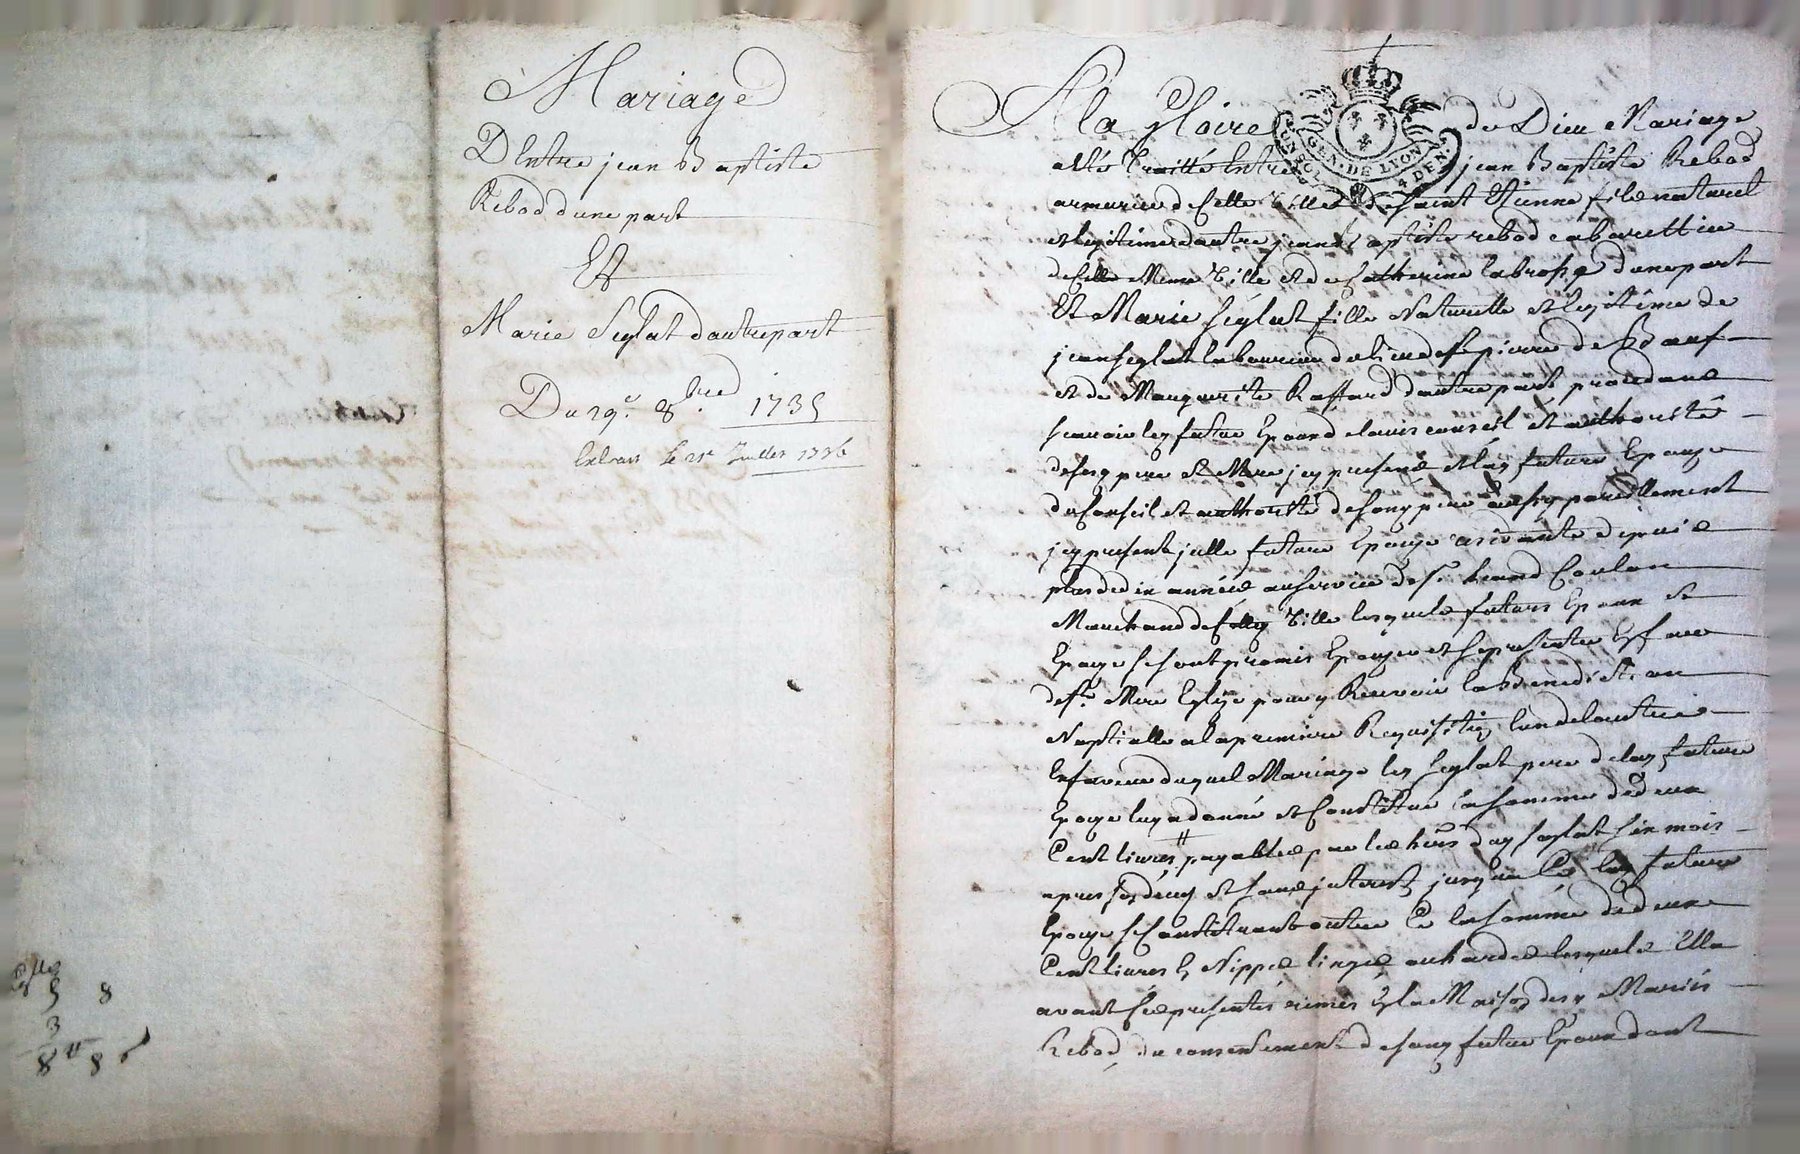 Mariage
D'Entre jean Baptiste
Rebod d'une part
Et
Marie Seglat d'autre part
Du 29e. 8bre 1735
Extrait le 21e Juillet 1736
A la gloire de Dieu Mariage
a été traitté Entre jean Baptiste Rebod
armurier de Cette Ville de Saint Etienne fils naturel
et legitime d'autre jean Baptiste rebod cabarettier
de Cette Meme Ville et de Catherine labrosse d'une part
Et Marie Seglat fille Naturelle et legitime de
jean Seglat laboureur du lieu de St pierre de Bœuf
et de Marguerite Raffard d'autre part procedans
scavoir ley futur Epoux de lavis conseil et authorité
de sey pere et Mere jcy presens et lay future Epouze
du Conseil et authorité de sony pere aussy pareillement
jcy present jcelle future Epouze residante depuis
plus de dix années au service de Sr Coulon
Marchand de Cettey Ville lesquels futurs Epoux et
Epouze se sont promis Epouzer et se presenter Ey face
de Ste Mere Eglize pour y Recevoir la Benediction
Nuptialle a la premiere Requisitioy l'un de lautre
En faveur duquel Mariage ley Seglat pere de lay future
Epouze luy a donné et Constitué la somme de deux
Cent livres payables par les d'uy Seglat six mois
apres soy déces et sans jnterest jusqu'a Ce lay future
Epouze se Constituant outre Ce la somme de deux
Cent livres Ey Nippes linges ou hardes lesquels Ella
avant Ces presentes remis Ey la Maisoy desy Mariés
Rebod, du consentement de sony futur Epoux dont
GEN. DE LYON
4 DEN.
8
3
8 8